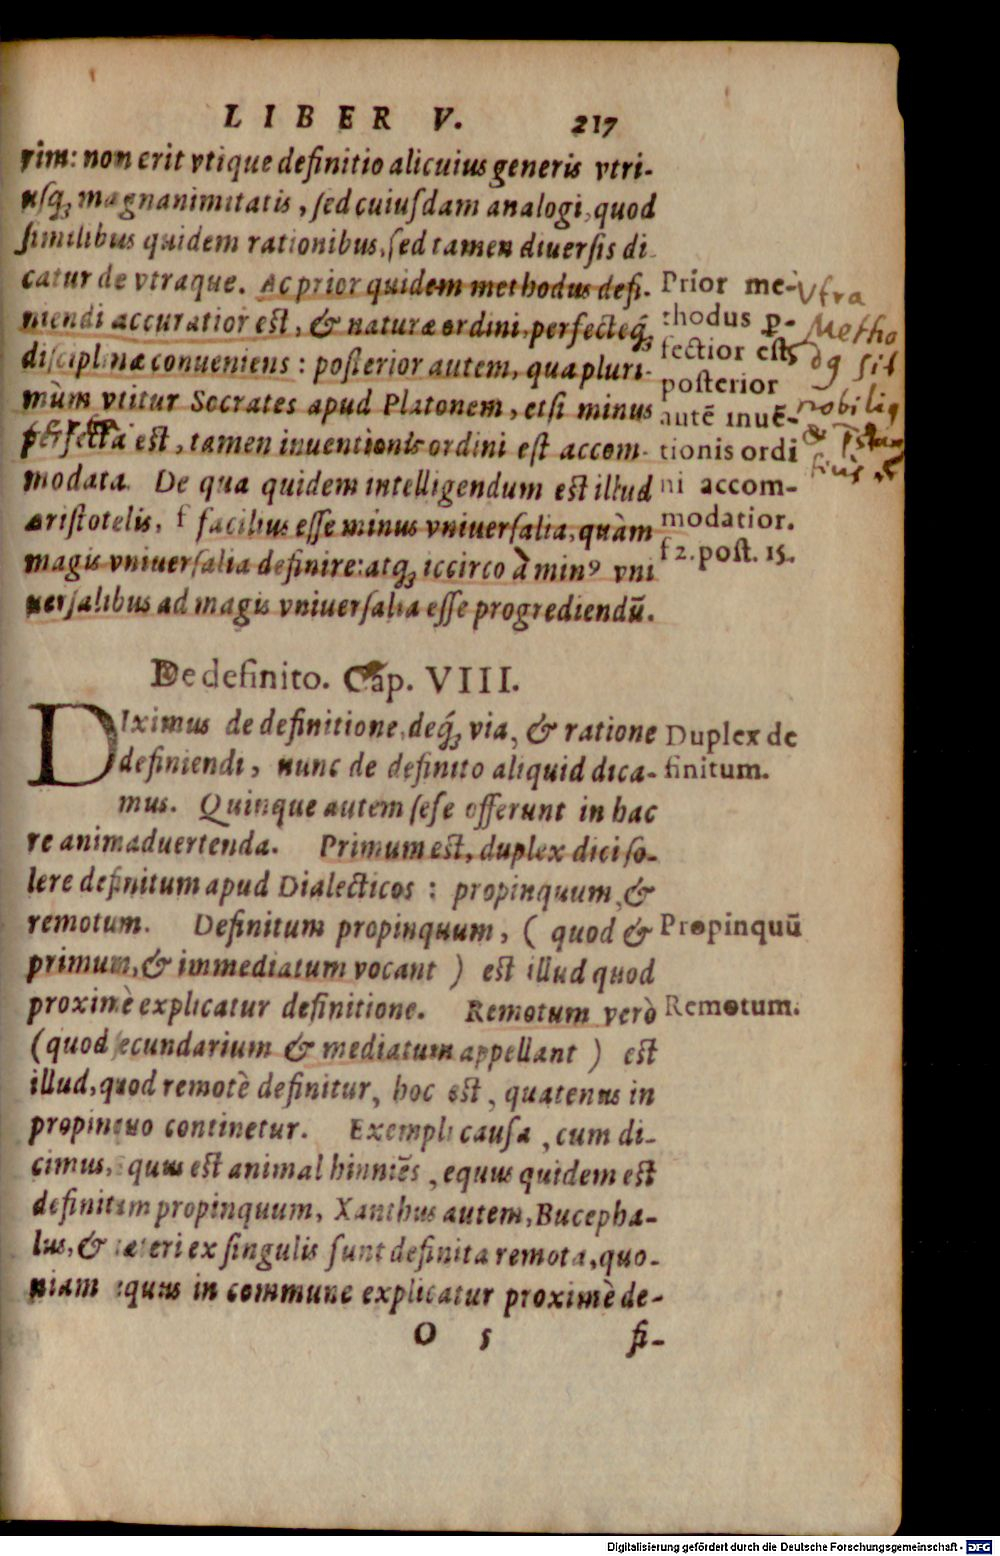 LIBER V. 217
rim: non erit vtique definitio alicuius generis vtri-
usq́; magnanimitatis, sed cuiusdam analogi, quod
similibus quidem rationibus, sed tamen diuersis di
catur de vtraque. Ac prior quidem methodus defi-
niendi accuratior est, & naturæ ordini, perfecteq́;
disciplinæ conueniens: posterior autem, qua pluri-
mùm vtitur Socrates apud Platonem, etsi minus
perfecta est, tamen inuentionis ordini est accom-
modata. De qua quidem intelligendum est illud
Aristotelis, f facilius esse minus vniuersalia, quàm
magis vniuersalia definire: atq; iccirco à minꝰ vni
uersalibus ad magis vniuersalia esse progrediendū.
Prior me-
thodus ꝑ-
fectior est,
posterior
autē inuē-
tionis ordi
ni accom-
modatior.
f 2. post. 15.
Vtra
Metho
dꝰ sit
nobiliꝰ
De definito. Cap. VIII.
DIximus de definitione, deq́; via, & ratione
definiendi, nunc de definito aliquid dica-
mus. Quinque autem sese offerunt in hac
re animaduertenda. Primum est, duplex dici so-
lere definitum apud Dialecticos: propinquum, &
remotum. Definitum propinquum, (quod &
primum, & immediatum vocant) est illud quod
proximè explicatur definitione. Remotum verò
(quod secundarium & mediatum appellant) est
illud, quod remotè definitur, hoc est, quatenus in
propinquo continetur. Exempli causa, cum di-
cimus, equus est animal hinniēs, equus quidem est
definitum propinquum, Xanthus autem, Bucepha-
lus, & cæteri ex singulis sunt definita remota, quo-
niam equus in commune explicatur proximè de-
Duplex de
finitum.
Propinquū
Remotum.
O 5 fi-
Digitalisierung gefördert durch die Deutsche Forschungsgemeinschaft - DFG